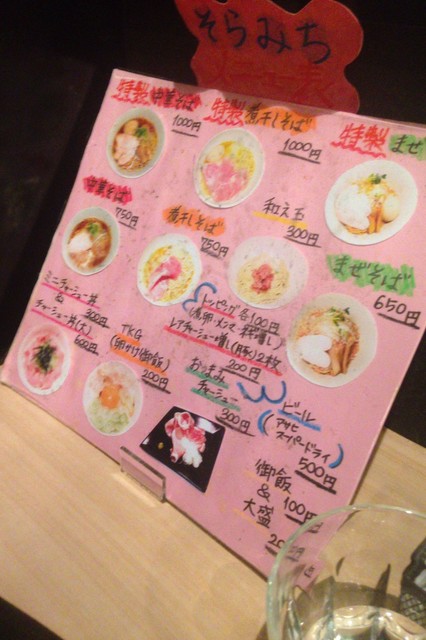 そらみち
特製 中華そば
1000円
特製 煮干しそば
1000円
特製 まぜ
中華そば
750円
煮干しそば
750円
和え玉
300円
まぜそば
650円
ミニチャーシュー丼
300円
チャーシュー丼(大)
600円
TKG
(卵かけ御飯)
200円
トッピング各100円
レアチャーシュー増し(豚)2枚
200円
おつまみ
チャーシュー
300円
ビール
(アサヒ
スーパードライ)
500円
御飯
100円
&
大盛